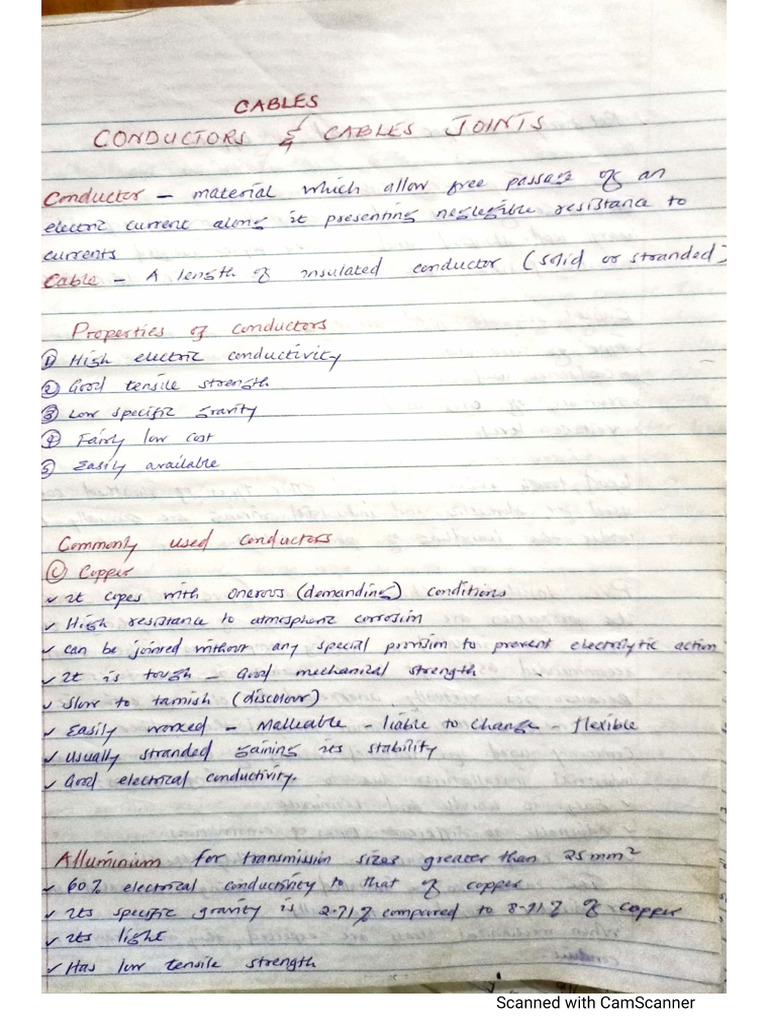 CABLES
CONDUCTORS & CABLES JOINTS
Conductor – material which allow free passage of an
electric current along it presenting neglegible resistance to
currents
Cable – A length of insulated conductor (solid or stranded)
Properties of conductors
① High electric conductivity
② Good tensile strength
③ Low specific gravity
④ Fairly low cost
⑤ Easily available
Commonly used conductors
Copper
✓ It copes with onerous (demanding) conditions
✓ High resistance to atmospheric corrosion
✓ can be joined without any special provision to prevent electrolytic action
✓ It is tough – Good mechanical strength
✓ Slow to tarnish (discolour)
✓ Easily worked – Malleable – liable to change – flexible
✓ Usually stranded gaining its stability
✓ Good electrical conductivity.
Alluminium for transmission sizes greater than 25mm²
✓ 60% electrical conductivity to that of copper
✓ Its specific gravity is 2.71% compared to 8.91% of copper
✓ Its light
✓ Has low tensile strength
Scanned with CamScanner